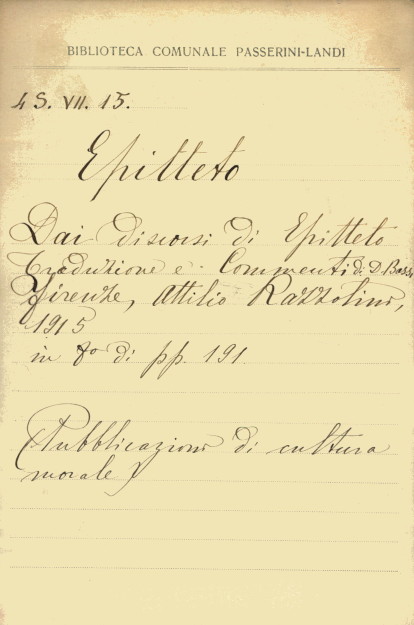 BIBLIOTECA COMUNALE PASSERINI-LANDI
4 S. VII. 15.
Epitteto
Dai discorsi di Epitteto
Traduzione e Commenti di D. Bassi
Firenze, Attilio Razzolini,
1915
in 8º di pp. 191
(Pubblicazioni di cultura
morale)